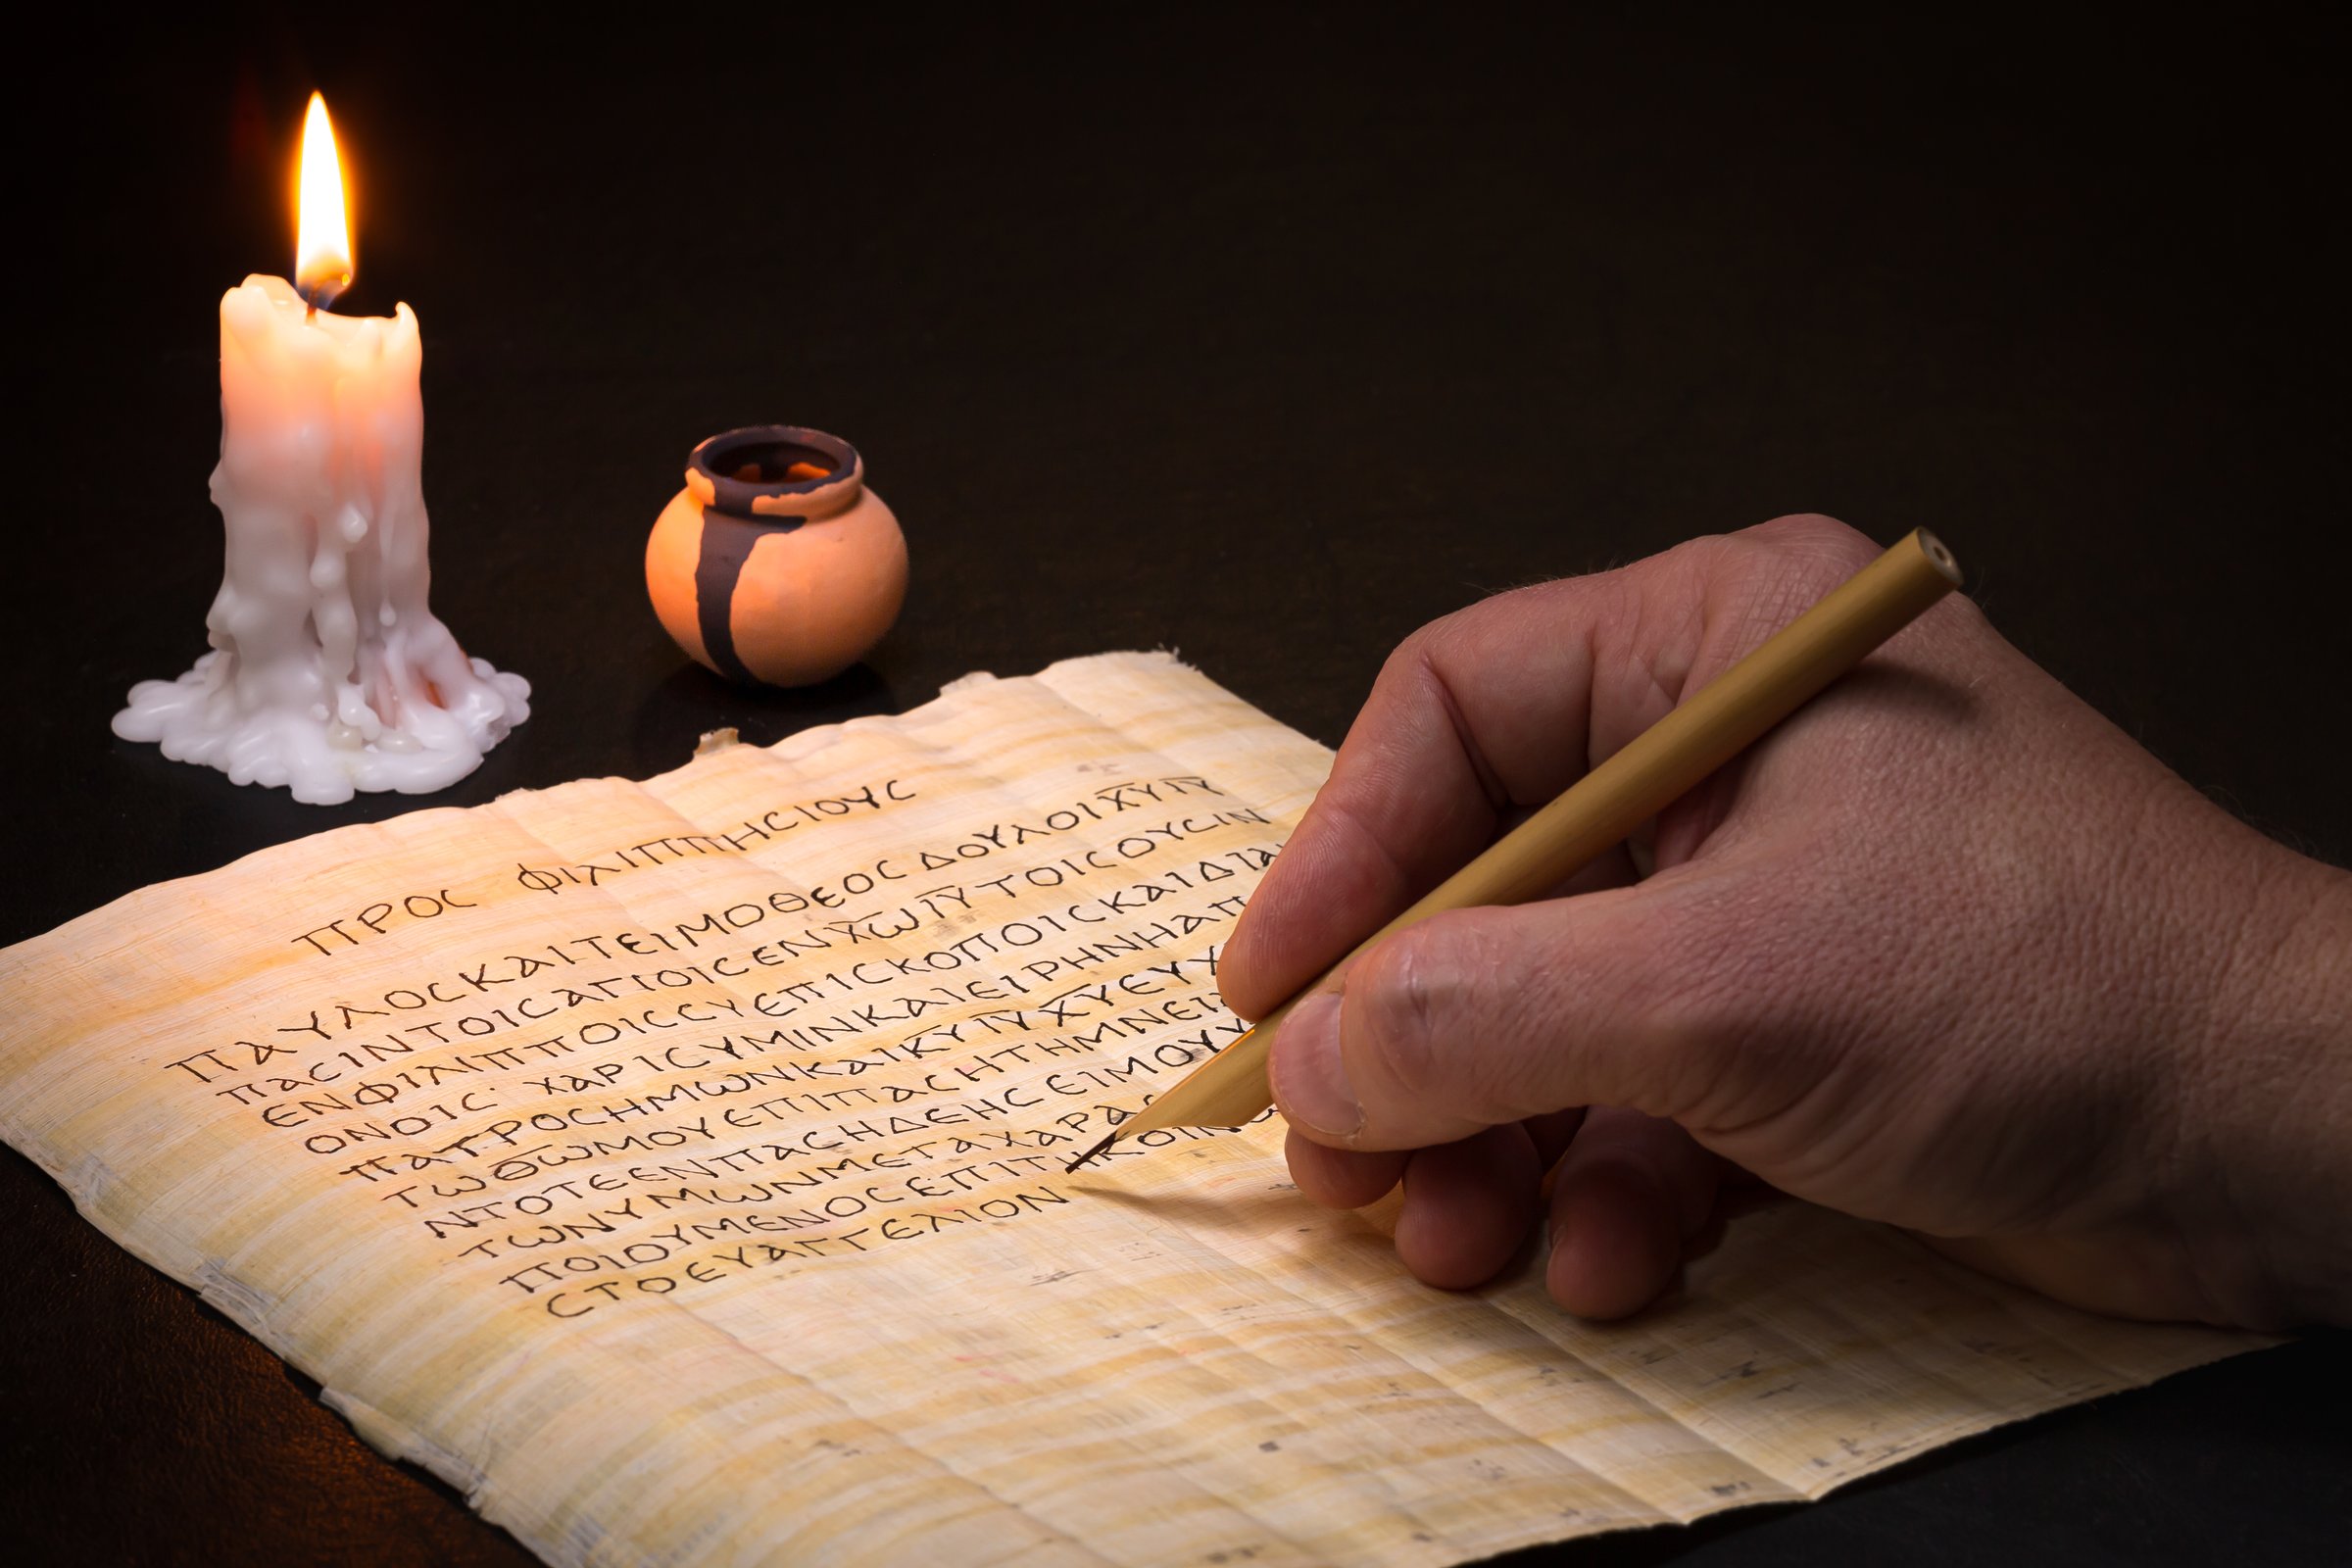 ΠΡΟϹ ΦΙΛΙΠΠΗϹΙΟΥϹ
ΠΑΥΛΟϹΚΑΙΤΕΙΜΟΘΕΟϹΔΟΥΛΟΙΧ̅Υ̅Ι̅Υ̅
ΠΑϹΙΝΤΟΙϹΑΓΙΟΙϹΕΝΧ̅Ω̅Ι̅Υ̅ΤΟΙϹΟΥϹΙΝ
ΕΝΦΙΛΙΠΠΟΙϹϹΥΕΠΙϹΚΟΠΟΙϹΚΑΙΔΙΑΚ
ΟΝΟΙϹ· ΧΑΡΙϹΥΜΙΝΚΑΙΕΙΡΗΝΗΑΠ
ΠΑΤΡΟϹΗΜΩΝΚΑΙΚ̅Υ̅Ι̅Υ̅Χ̅Υ̅ΕΥΧ
ΤΩΘ̅Ω̅ΜΟΥΕΠΙΠΑϹΗΤΗΜΝΕΙ
ΝΤΟΤΕΕΝΠΑϹΗΔΕΗϹΕΙΜΟΥΥ
ΤΩΝΥΜΩΝΜΕΤΑΧΑΡΑϹ
ΠΟΙΟΥΜΕΝΟϹΕΠΙΤΗΚΟΙΝΩ
ϹΤΟΕΥΑΓΓΕΛΙΟΝ